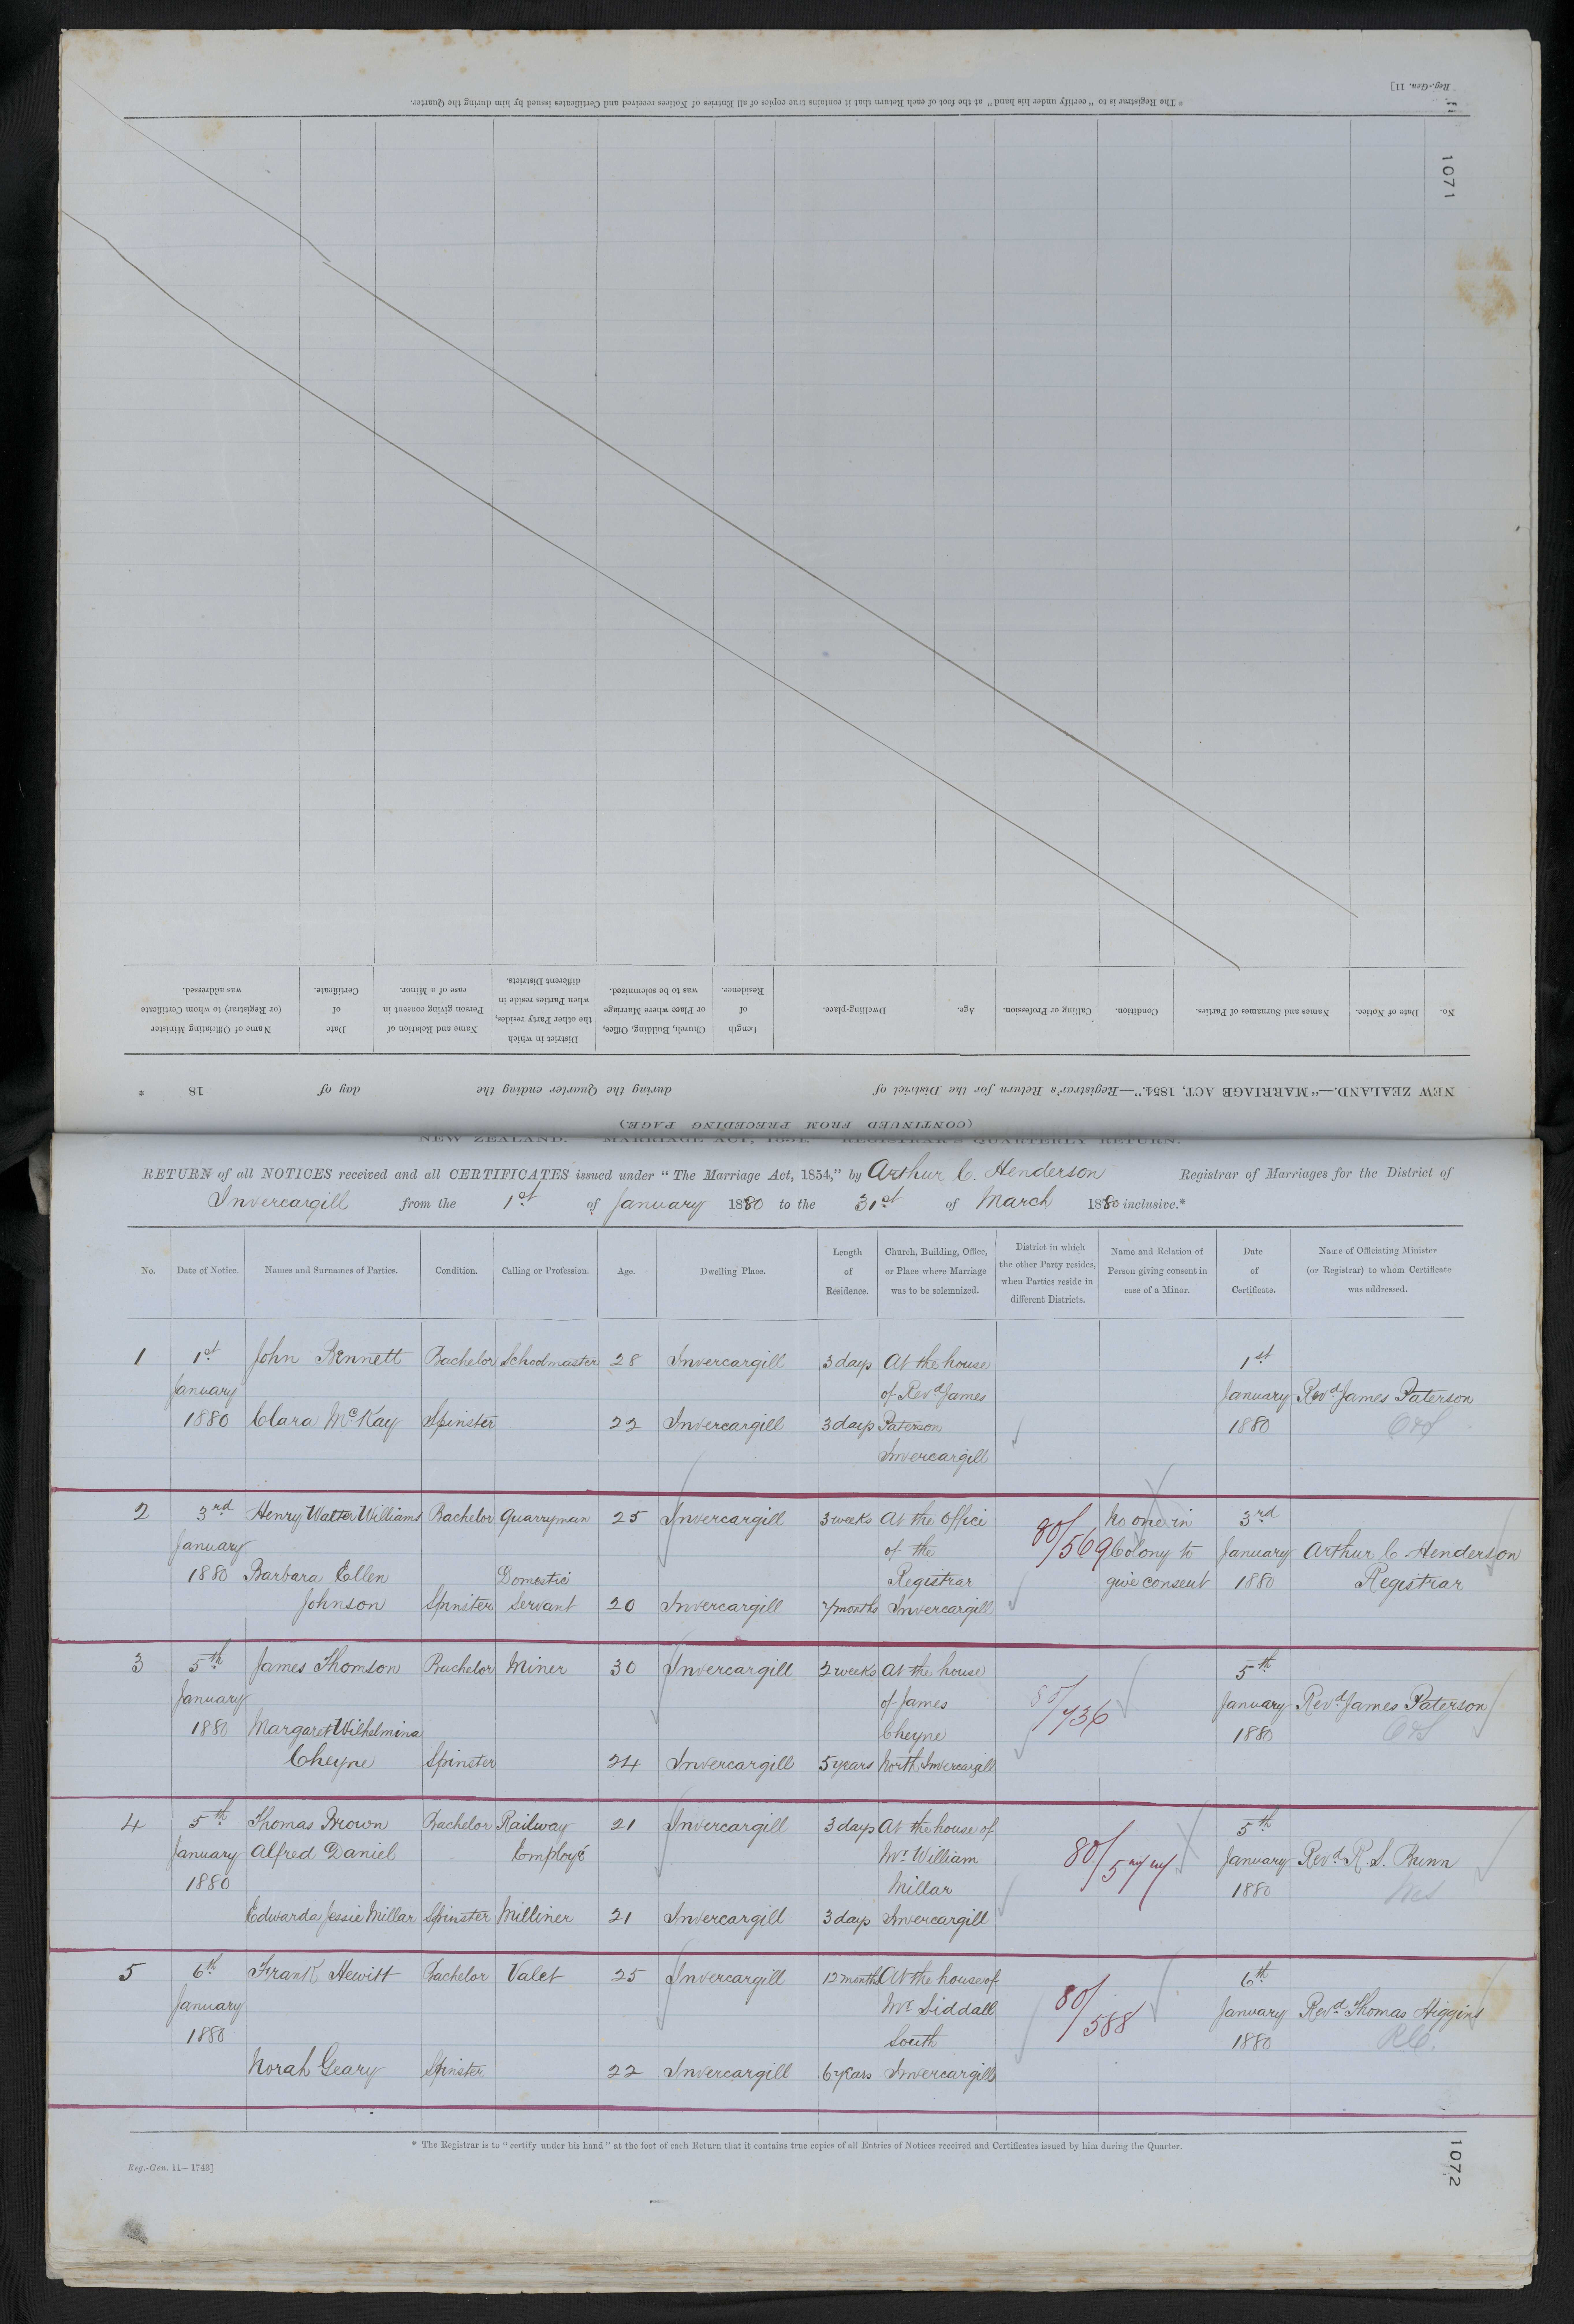 Reg.-Gen. 11]
1071
* The Registrar is to "certify under his hand" at the foot of each Return that it contains true copies of all Entries of Notices received and Certificates issued by him during the Quarter.
No.
Date of Notice.
Names and Surnames of Parties.
Condition.
Calling or Profession.
Age.
Dwelling-place.
Length of Residence.
Church, Building, Office, or Place where Marriage was to be solemnized.
District in which the other Party resides, when Parties reside in different Districts.
Name and Relation of Person giving consent in case of a Minor.
Date of Certificate.
Name of Officiating Minister (or Registrar) to whom Certificate was addressed.
NEW ZEALAND.—"MARRIAGE ACT, 1854."—Registrar's Return for the District of during the Quarter ending the day of 18 *
(CONTINUED FROM PRECEDING PAGE.)
NEW ZEALAND. MARRIAGE ACT, 1854. REGISTRAR'S QUARTERLY RETURN.
RETURN of all NOTICES received and all CERTIFICATES issued under "The Marriage Act, 1854," by Arthur C. Henderson Registrar of Marriages for the District of
Invercargill from the 1st of January 1880 to the 31st of March 1880 inclusive.*
No.
Date of Notice.
Names and Surnames of Parties.
Condition.
Calling or Profession.
Age.
Dwelling Place.
Length of Residence.
Church, Building, Office, or Place where Marriage was to be solemnized.
District in which the other Party resides, when Parties reside in different Districts.
Name and Relation of Person giving consent in case of a Minor.
Date of Certificate.
Name of Officiating Minister (or Registrar) to whom Certificate was addressed.
1 1st John Bennett Bachelor Schoolmaster 28 Invercargill 3 days At the house 1st
January of Revd James January Revd James Paterson
1880 Clara McKay Spinster 22 Invercargill 3 days Paterson 1880
Invercargill
2 3rd Henry Walter Williams Bachelor Quarryman 25 Invercargill 3 weeks At the Office 80/569 No one in 3rd
January of the Colony to January Arthur C. Henderson
1880 Barbara Ellen Domestic Registrar give consent 1880 Registrar
Johnson Spinster Servant 20 Invercargill 7 months Invercargill
3 5th James Thomson Bachelor Miner 30 Invercargill 2 weeks At the house 5th
January of James 80/736 January Revd James Paterson
1880 Margaret Wilhelmina Cheyne 1880
Cheyne Spinster 24 Invercargill 5 years North Invercargill
4 5th Thomas Brown Bachelor Railway 21 Invercargill 3 days At the house of 5th
January Alfred Daniel Employé Mr William 80/577 January Revd R. S. Bunn
1880 Millar 1880
Edwarda Jessie Millar Spinster Milliner 21 Invercargill 3 days Invercargill
5 6th Frank Hewitt Bachelor Valet 25 Invercargill 12 months At the house of 6th
January Mr Siddall 80/588 January Revd Thomas Higgins
1880 South 1880 RC.
Norah Geary Spinster 22 Invercargill 6 years Invercargill
* The Registrar is to "certify under his hand" at the foot of each Return that it contains true copies of all Entries of Notices received and Certificates issued by him during the Quarter.
Reg.-Gen. 11—1743]
1072